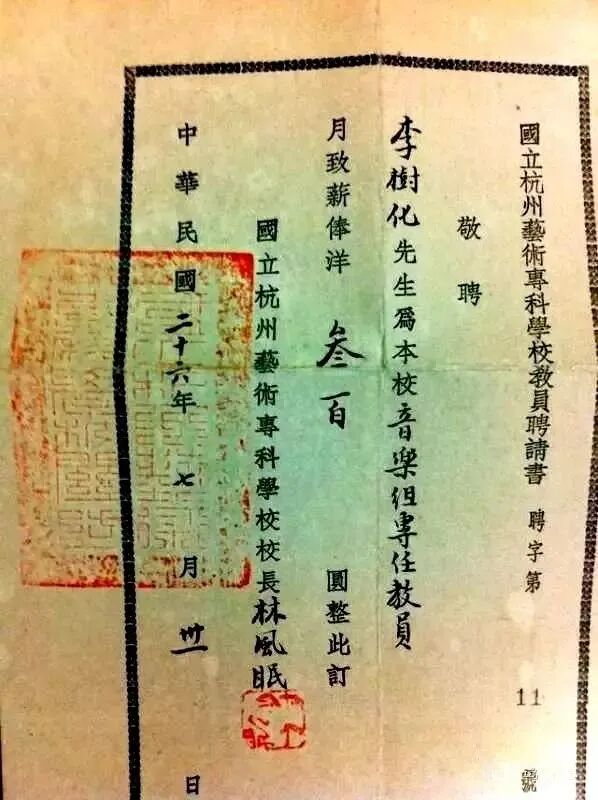 國立杭州藝術專科學校教員聘請書 聘字第 11 號
敬聘
李樹化先生為本校音樂組專任教員
月致薪俸洋 叁百 圓整此訂
國立杭州藝術專科學校校長林風眠
中華民國二十六年 七 月 卅一 日